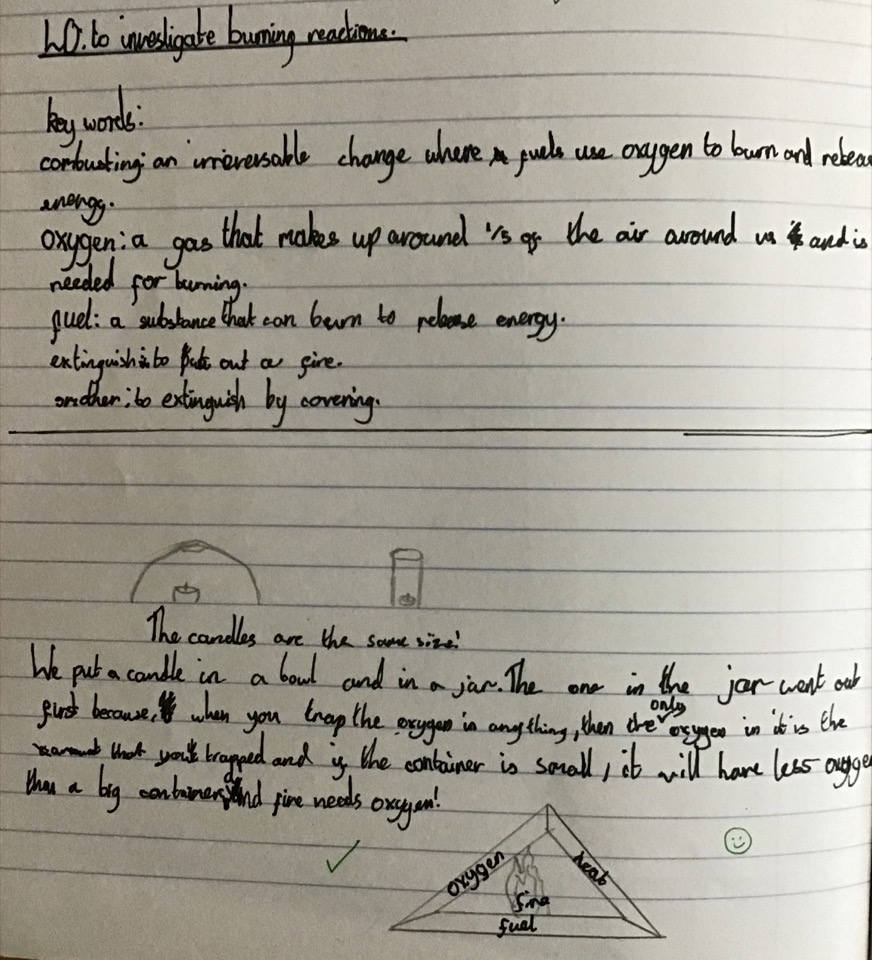 LO. to investigate burning reactions.
key words:
combusting: an irrieversable change where fuels use oxygen to burn and releas
energy.
oxygen: a gas that makes up around 1/5 of the air around us and is
needed for burning.
fuel: a substance that can burn to release energy.
extinguish: to put out a fire.
smother: to extinguish by covering.
The candles are the same size!
We put a candle in a bowl and in a jar. The one in the jar went out
only
first because, when you trap the oxygen in anything, then the oxygen in it is the
amount that you trapped and if the container is small, it will have less oxyge
than a big container and fire needs oxygen!
oxygen
heat
fire
fuel